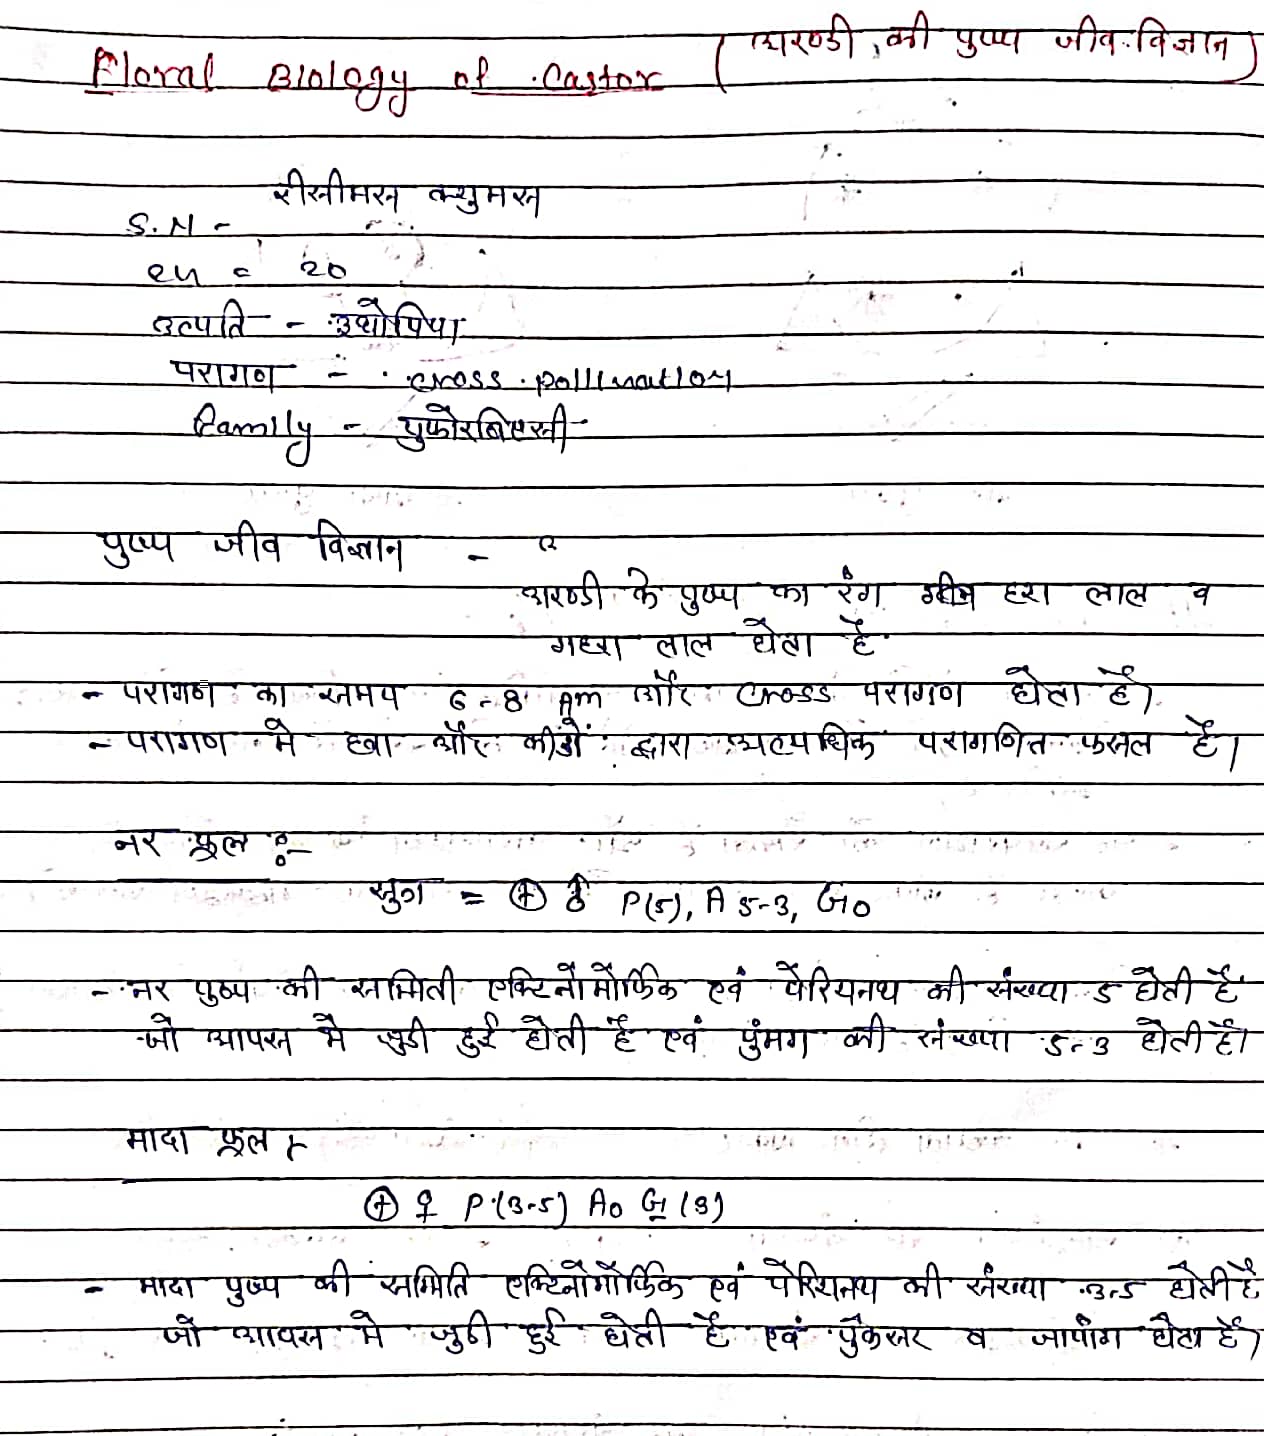 Floral Biology of Castor (अरण्डी की पुष्प जीव विज्ञान)
रीसीमस क्युमस
S.N -
2n = 20
उत्पति - इथोपिया
परागण - cross pollination
Family - युफोरबिएसी
पुष्प जीव विज्ञान -
अरण्डी के पुष्प का रंग हरा लाल व
गहरा लाल होता है
- परागण का समय 6-8 Am और cross परागण होता है।
- परागण मे हवा और कीडों द्वारा अत्यधिक परागणित फसल है।
नर फूल :-
सुत्र = ⊕ ♂ P(5), A 5-3, G0
- नर पुष्प की समिती एक्टिनोमोर्फिक एवं पेरियनथ की संख्या 5 होती है
जो आपस मे जुडी हुई होती है एवं पुंमग की संख्या 5-3 होती है।
मादा फूल :-
⊕ ♀ P(3-5) A0 G̲(3)
- मादा पुष्प की समिति एक्टिनोमोर्फिक एवं पेरियनथ की संख्या 3-5 होती है
जो आपस मे जुडी हुई होती है एवं पुंकेसर व जायांग होता है।